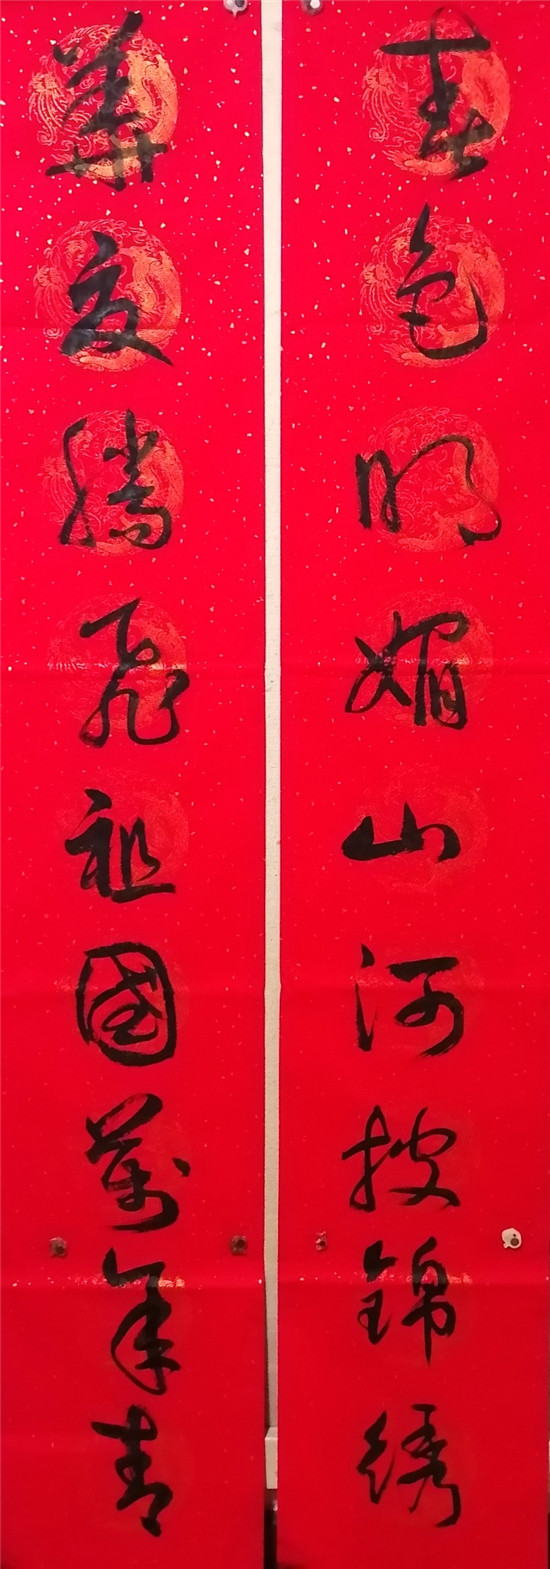 春色明媚山河披锦绣
華夏腾飞祖國萬年青